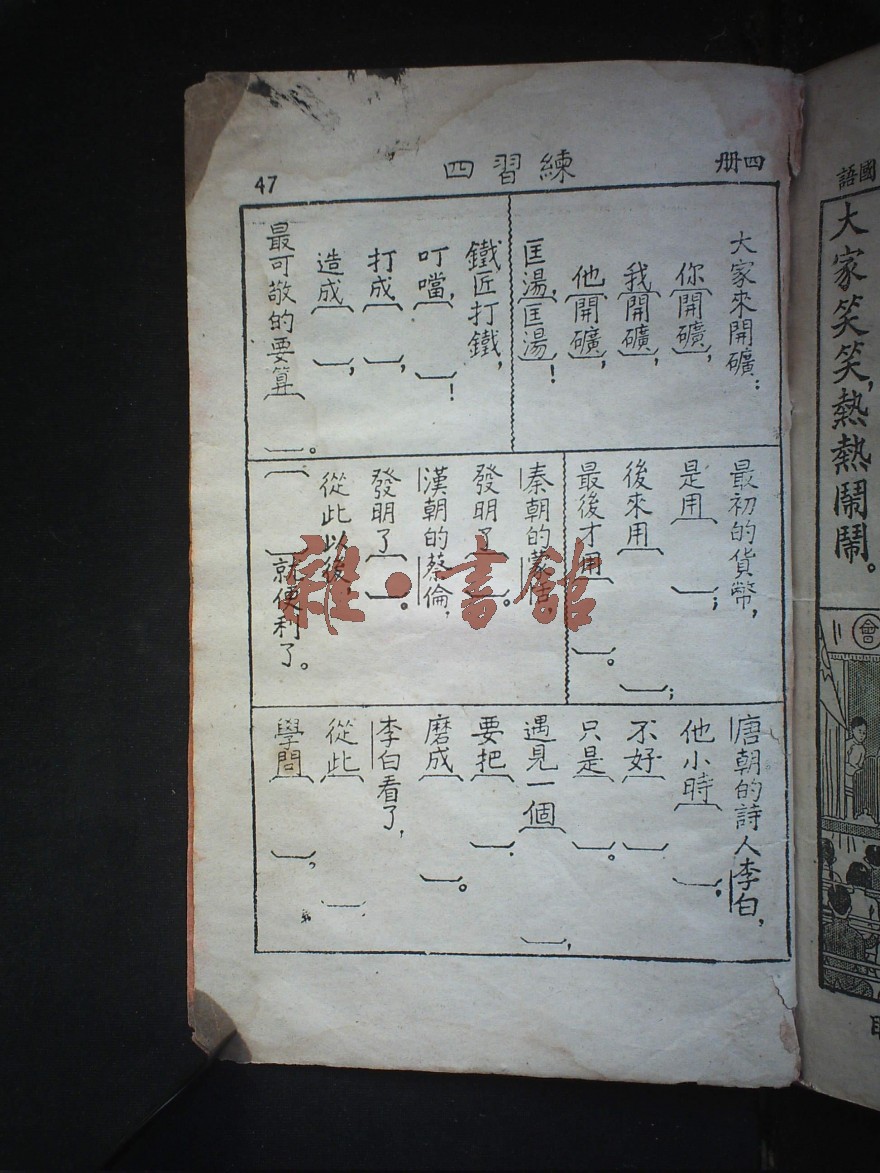 四册
練習四
47
大家來開礦：
你（開礦），
我（開礦），
他（開礦），
匡湯，匡湯！
鐵匠打鐵，
叮噹，（　）！
打成（　），
造成（　），
最可敬的要算（　）。
最初的貨幣，
是用（　）；
後來用（　）；
最後才用（　）。
秦朝的蒙恬，
發明了（　）。
漢朝的蔡倫，
發明了（　）。
從此以後，
（　）就便利了。
唐朝的詩人李白，
他小時（　），
不好（　）
只是（　）。
遇見一個（　），
要把（　），
磨成（　）。
李白看了，
從此（　），
學問（　）。
國語
大家笑笑，熱熱鬧鬧。
會
雜·書館